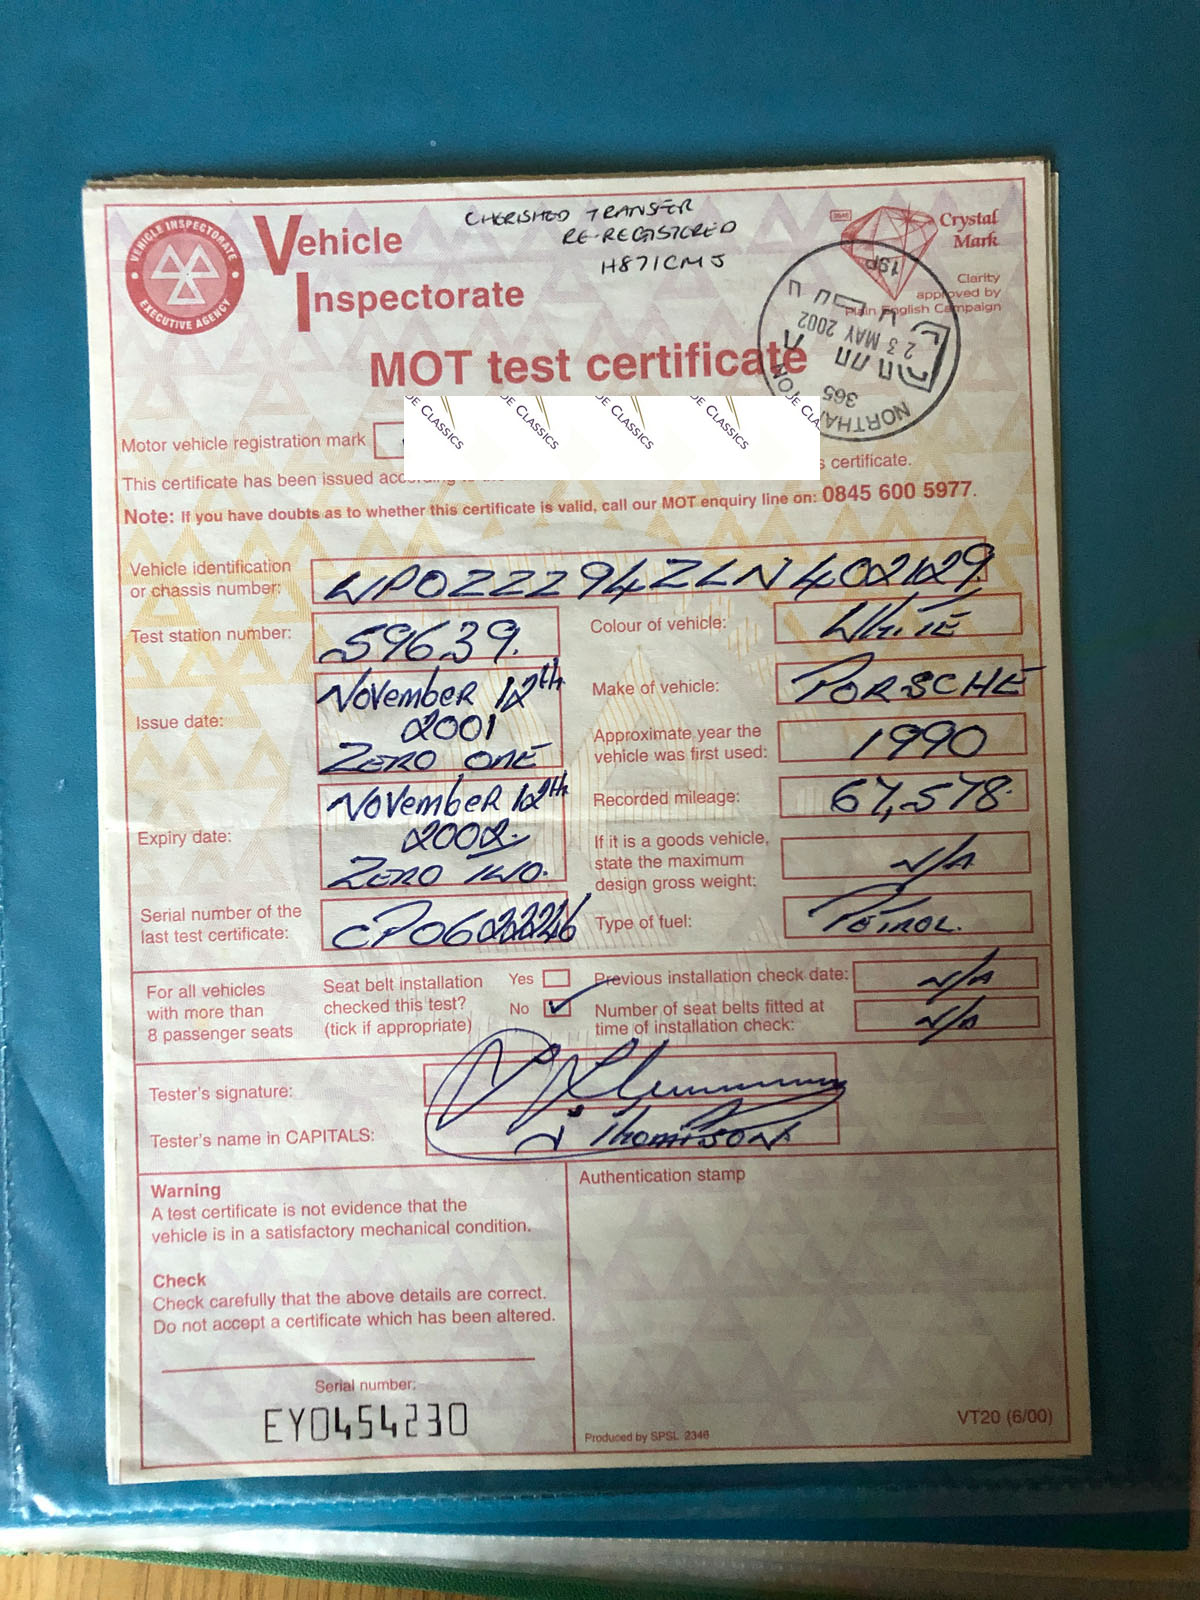 VEHICLE INSPECTORATE
EXECUTIVE AGENCY
Vehicle
Inspectorate
CHERISHED TRANSFER
RE-REGISTERED
H871CMJ
Crystal
Mark
Clarity
approved by
Plain English Campaign
NORTHA
TON
365
23 MAY 2002
1SP
MOT test certificate
DE CLASSICS DE CLASSICS DE CLASSICS DE CLASSICS DE CLA
Motor vehicle registration mark
This certificate has been issued according to the s certificate.
Note: If you have doubts as to whether this certificate is valid, call our MOT enquiry line on: 0845 600 5977.
Vehicle identification
or chassis number: WPOZZZ94ZLN402129.
Test station number: 59639.
Colour of vehicle: WHITE
Issue date: November 12th
2001
ZERO ONE
Make of vehicle: PORSCHE
Approximate year the
vehicle was first used: 1990
Expiry date: November 12th
2002
ZERO TWO.
Recorded mileage: 67,578.
If it is a goods vehicle,
state the maximum
design gross weight: N/A
Serial number of the
last test certificate: CP0622246
Type of fuel: PETROL.
For all vehicles
with more than
8 passenger seats
Seat belt installation
checked this test?
(tick if appropriate)
Yes
No ✓
Previous installation check date: N/A
Number of seat belts fitted at
time of installation check: N/A
Tester's signature:
Tester's name in CAPITALS: J THOMPSON
Warning
A test certificate is not evidence that the
vehicle is in a satisfactory mechanical condition.
Check
Check carefully that the above details are correct.
Do not accept a certificate which has been altered.
Serial number:
EY0454230
Authentication stamp
Produced by SPSL 2346
VT20 (6/00)